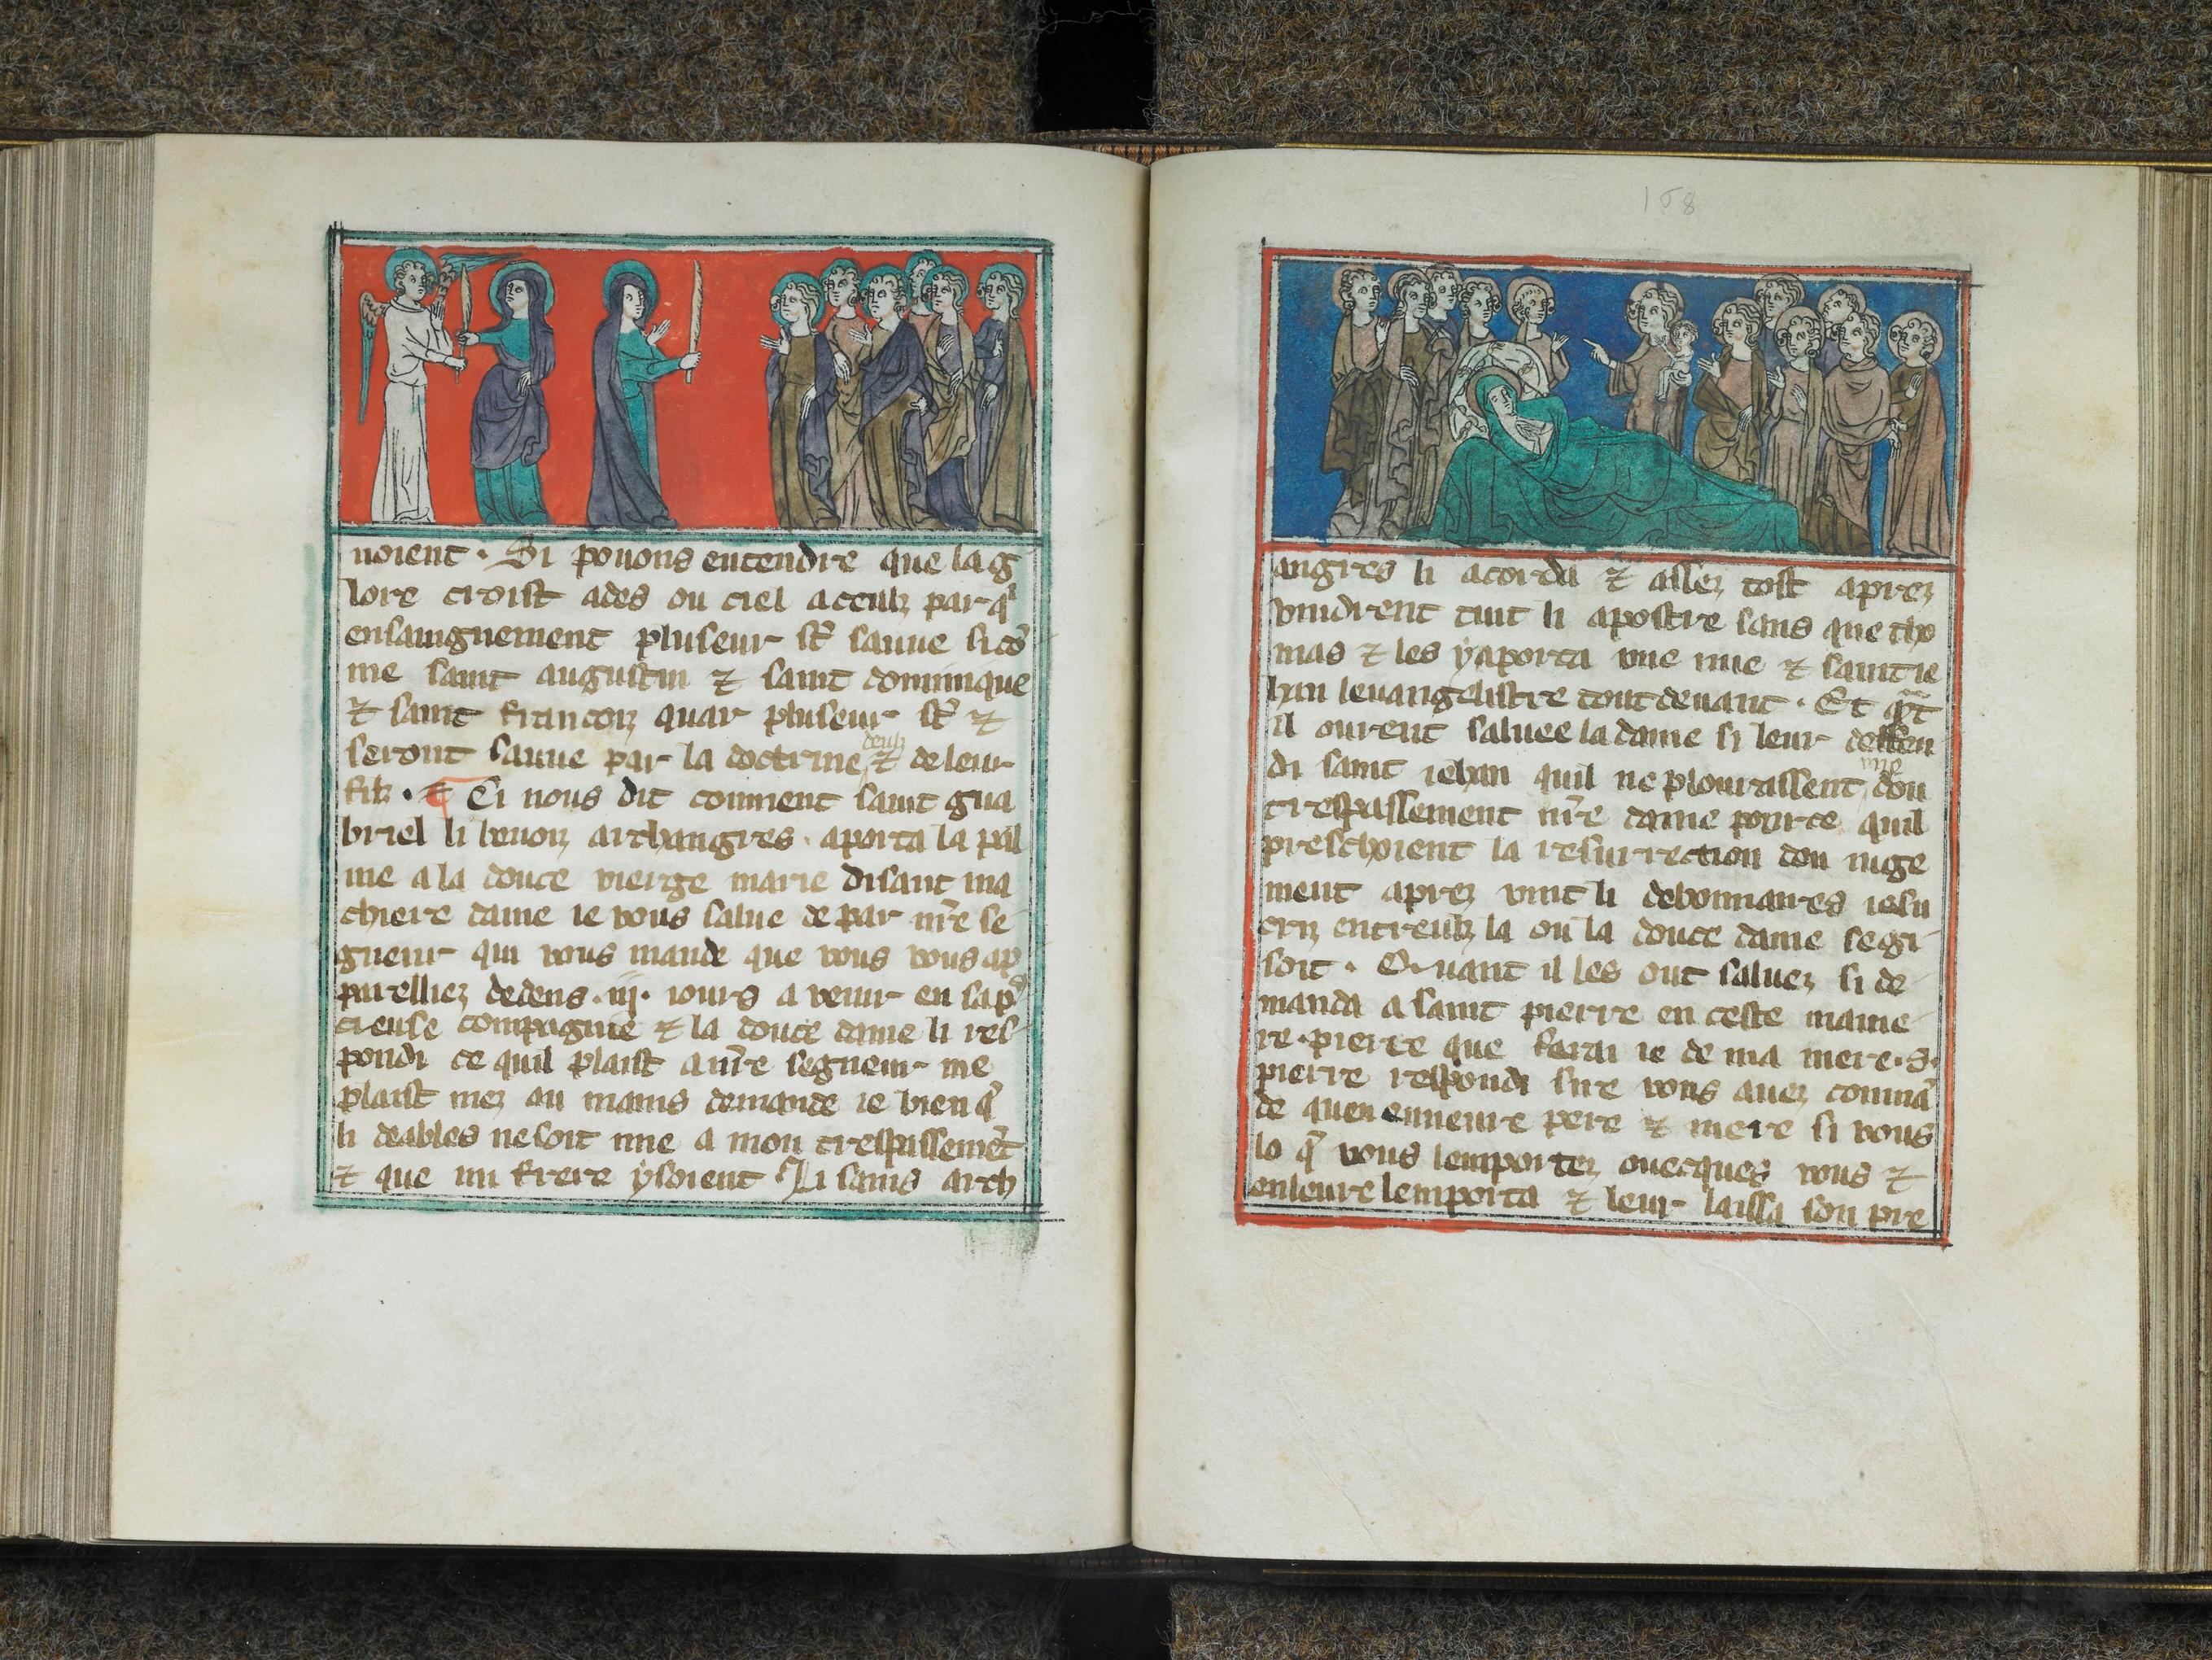 uoient · Si pouons entendre que la g
lore croist ades ou ciel a ceulz par qͥ
ensaingnement pluseur st̃ sauue si cõ
me saint augustin ⁊ saint dominique
⁊ saint francoiz quar pluseur st̃ ⁊
seront sauue par la doctrine deulz ⁊ de leur
filz · ¶ Ci nous dit comment saint gua
briel li benoiz archangres · aporta la pal
me a la douce vierge marie disant ma
chiere dame ie vous salue de par nr̃e se
gneur qui vous mande que vous vous ap
pareilliez dedens · iij · iours a venir en sa p̃
cieuse compagnie ⁊ la douce dame li res
pondi ce quil plaist a nr̃e segneur me
plaist mez au mains demande ie bien q̃
li deables ne soit mie a mon trespassemẽt
⁊ que mi frere ẏ soient · Li sains arch
158
angres li acorda ⁊ assez tost aprez
vindrent tuit li apostre sans que tho
mas ⁊ les ẏ aporta vne nue ⁊ saint ie
han leuangelistre tout deuant · Et qᷓt
il ourent saluee la dame si leur deffen
di saint iehan quil ne plourassent mie dou
trespassement nr̃e dame pource quil
preschoient la resurrection dou iuge
ment aprez vint li debonnaires iesu
criz entreulz la ou la douce dame se gi
soit · Quant il les out saluez si de
manda a saint pierre en ceste manie
re · pierre que ferai ie de ma mere · S ·
pierre respondi sire vous auez commã
de quen enneure pere ⁊ mere si vous
lo q̃ vous lemportez ouecques vous ⁊
enleure lemporta ⁊ leur laissa son pre